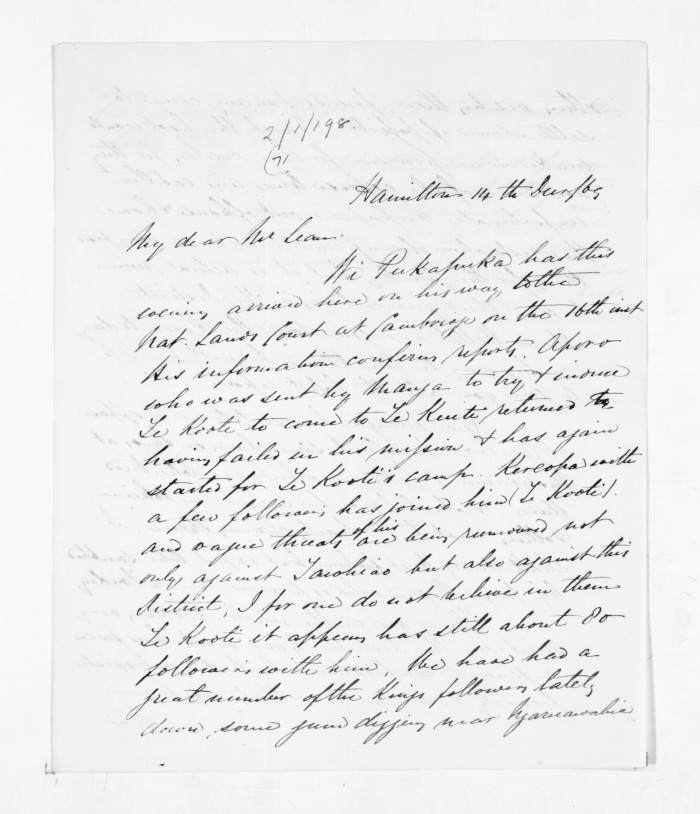 2/1/198
(71
Hamilton 14th Decr/69
My dear Mc Lean.
Wi Pukapuka has this
evening arrived here on his way to the
Nat. Lands Court at Cambridge on the 16th inst
His information confirms reports. Aporo
who was sent by Manga to try & induce
Te Kooti to come to Te Kuiti returned to
having failed in his mission & has again
started for Te Kooti's camp. Kereopa with
a few followers has joined him (Te Kooti).
and vague threats of his are being rumoured not
only against Tawhiao but also against this
District, I for one do not believe in them
Te Kooti it appears has still about 80
followers with him. We have had a
great number of the Kings followers lately
down, some gum digging near Ngaruawahia